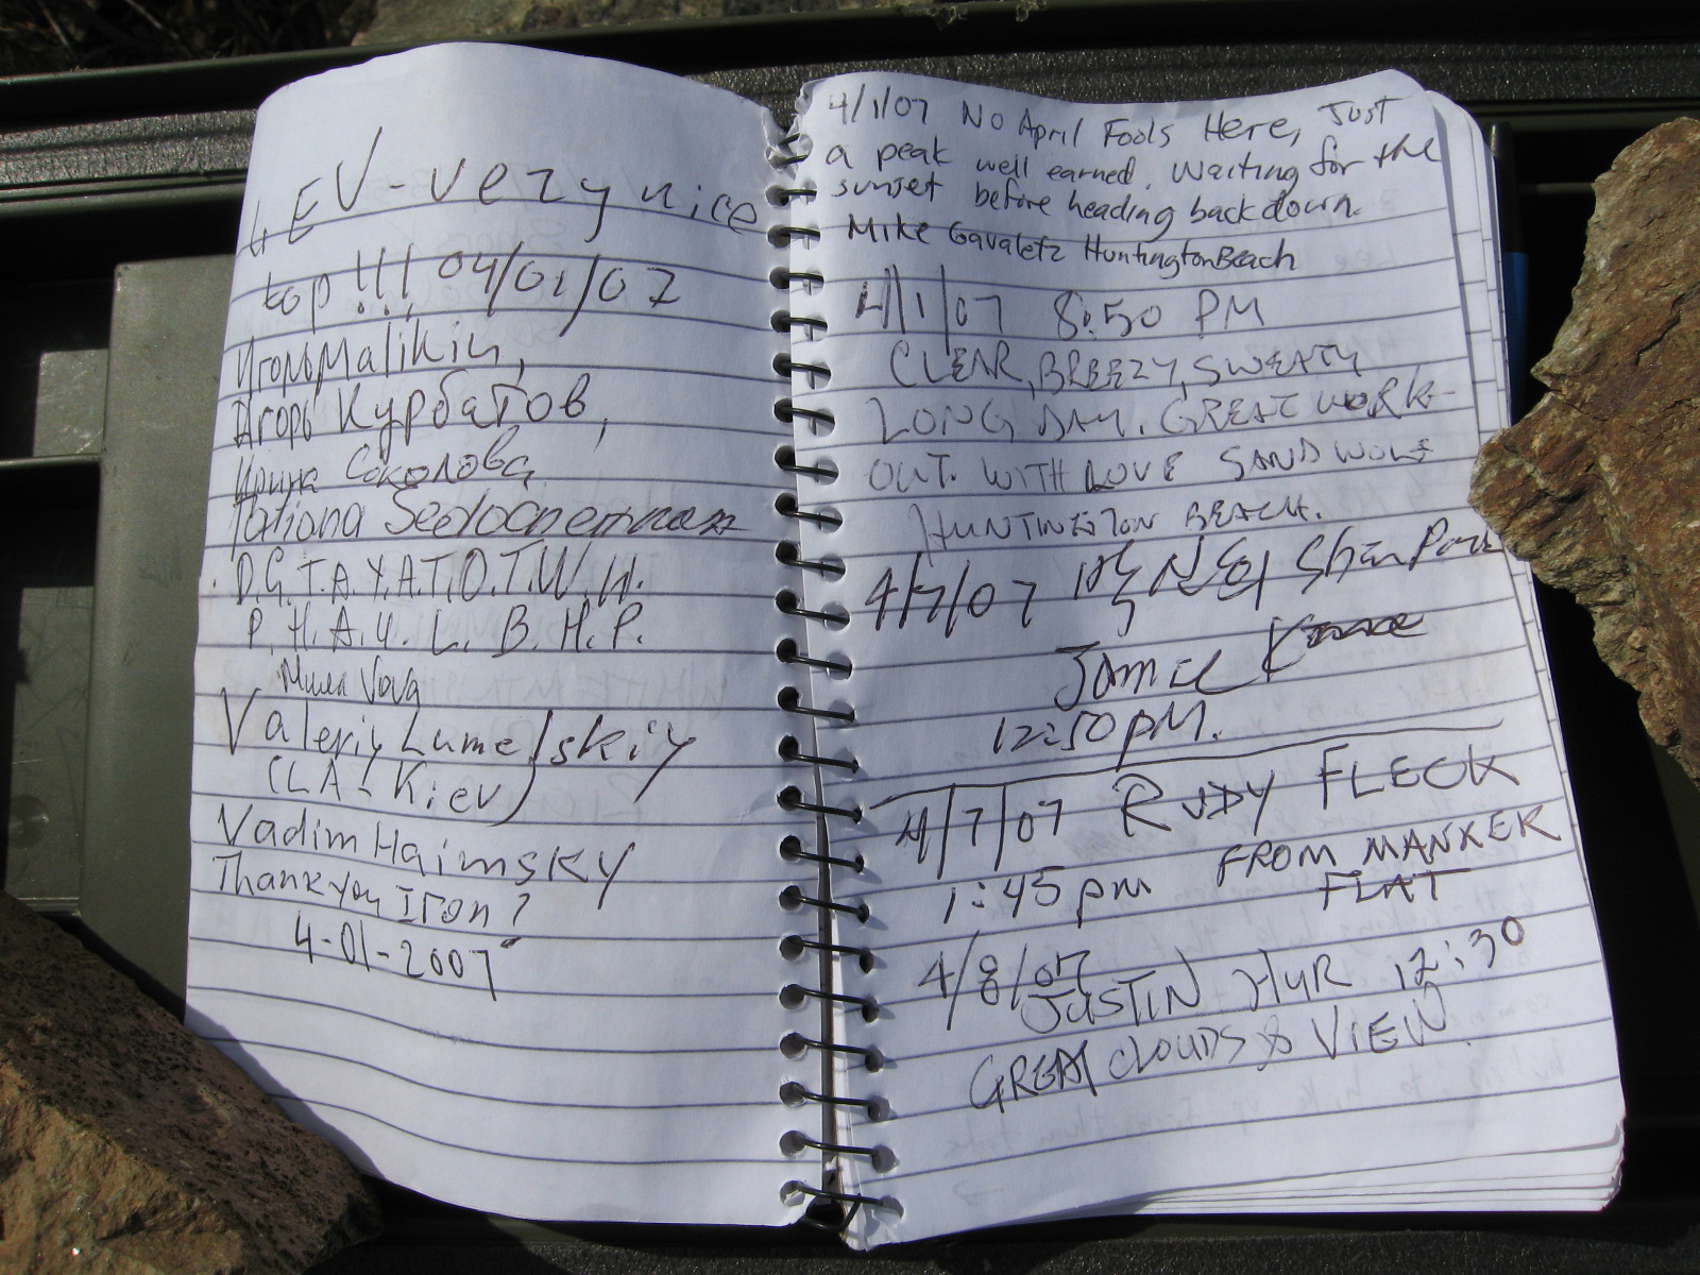 LEV - very nice
top!!! 04/01/07
Игорь Malikin,
Игорь Курбатов,
Ирина Соколова
Tatiana
D.G.T.A.Y.A.T.O.T.W.H.
P.H.A.Y.L.B.H.P.
Vova
Valeriy Lumelskiy
(LA - Kiev)
Vadim Haimsky
Thank you Iron!
4-01-2007
4/1/07 No April Fools Here, Just
a peak well earned. Waiting for the
sunset before heading back down.
Mike Gavaletz Huntington Beach
4/1/07 8:50 PM
CLEAR, BREEZY, SWEATY
LONG DAY. GREAT WORK-
OUT. WITH LOVE SAND WOLF
HUNTINGTON BEACH.
4/7/07 박신회 Shin Park
Jamie
12:50 PM.
4/7/07 RUDY FLECK
1:45 pm FROM MANKER
FLAT
4/8/07
JUSTIN HUR 12:30
GREAT CLOUDS & VIEW.